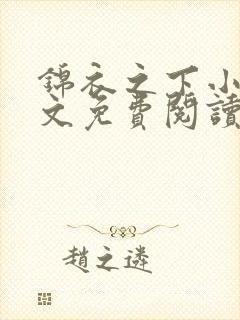 錦衣之下小
文免費閱讀
趙之遴